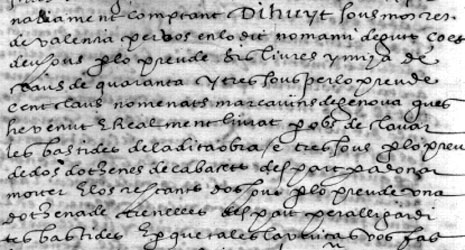 nalament comptant Dihuyt sous mo
de valencia per vos en lo dit nom a mi deguts ço es
deu sous per lo preu de sis livres y mija de
claus de quaranta y tres sous per lo preu de
cent claus nomenats marcavins de genova ques
he venut e Realment liurat per obs de clavar
les bastides de la dita obra e tres sous per lo preu
de dos dotzenes de cabacets des part pa donar
morter E los restants dos sous per lo preu de una
dotzena de des part per alli
les bastides E per que tal es la veritat vos fas